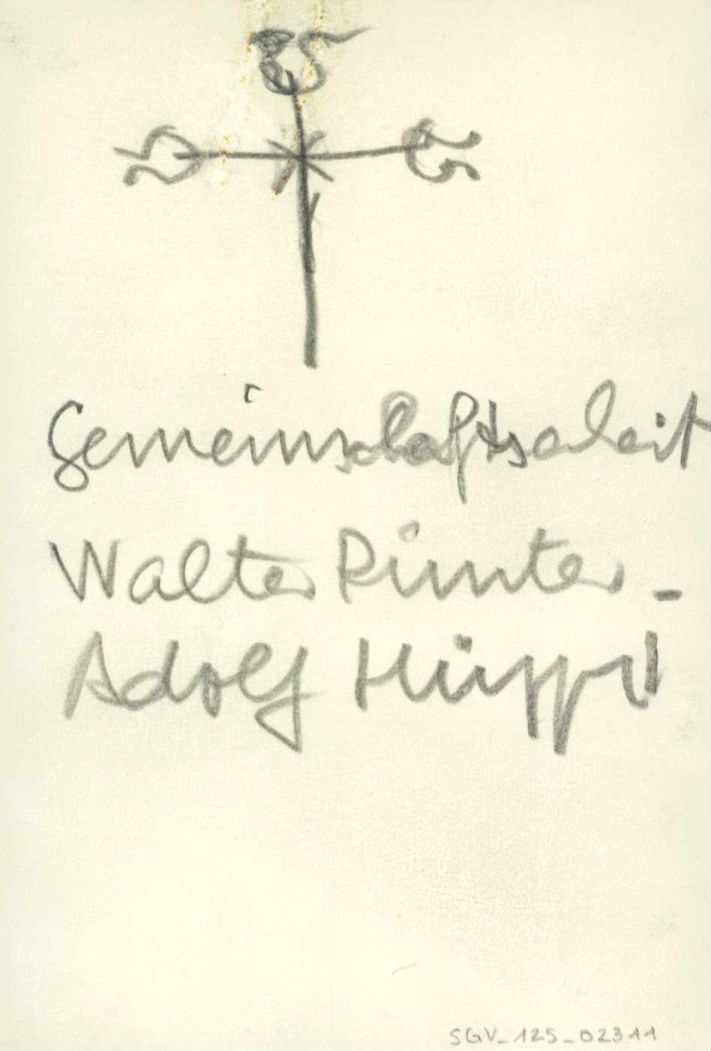 Gemeinschaftsarbeit
Walter -
Adolf Hüppi
SGV_125_02311